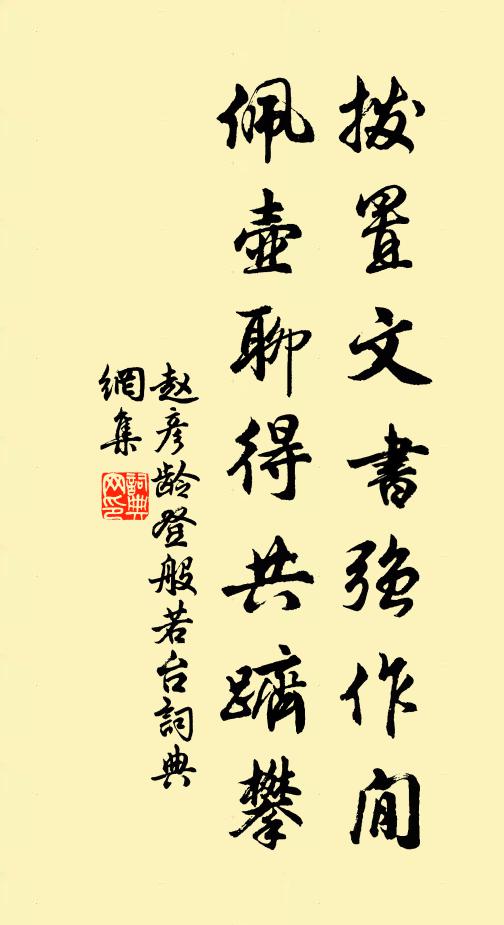 拨置文书强作闲
佩壶聊得共跻攀
赵彦龄登般若台词典
網集
詞典
网印